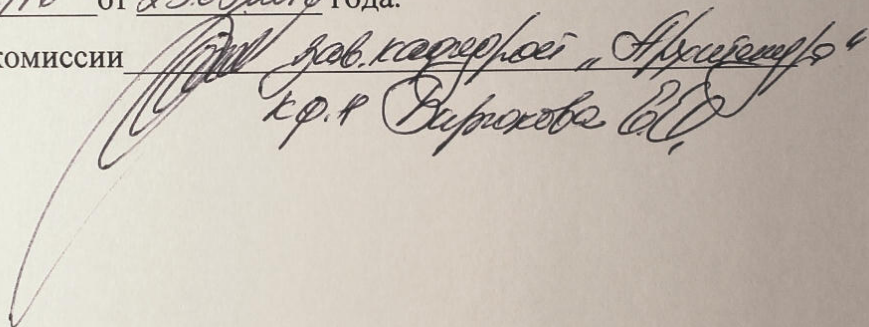 от 23. года.
комиссии зав. кафедрой „Архитектура"
к.ф.н Бирюкова Е.Ю.